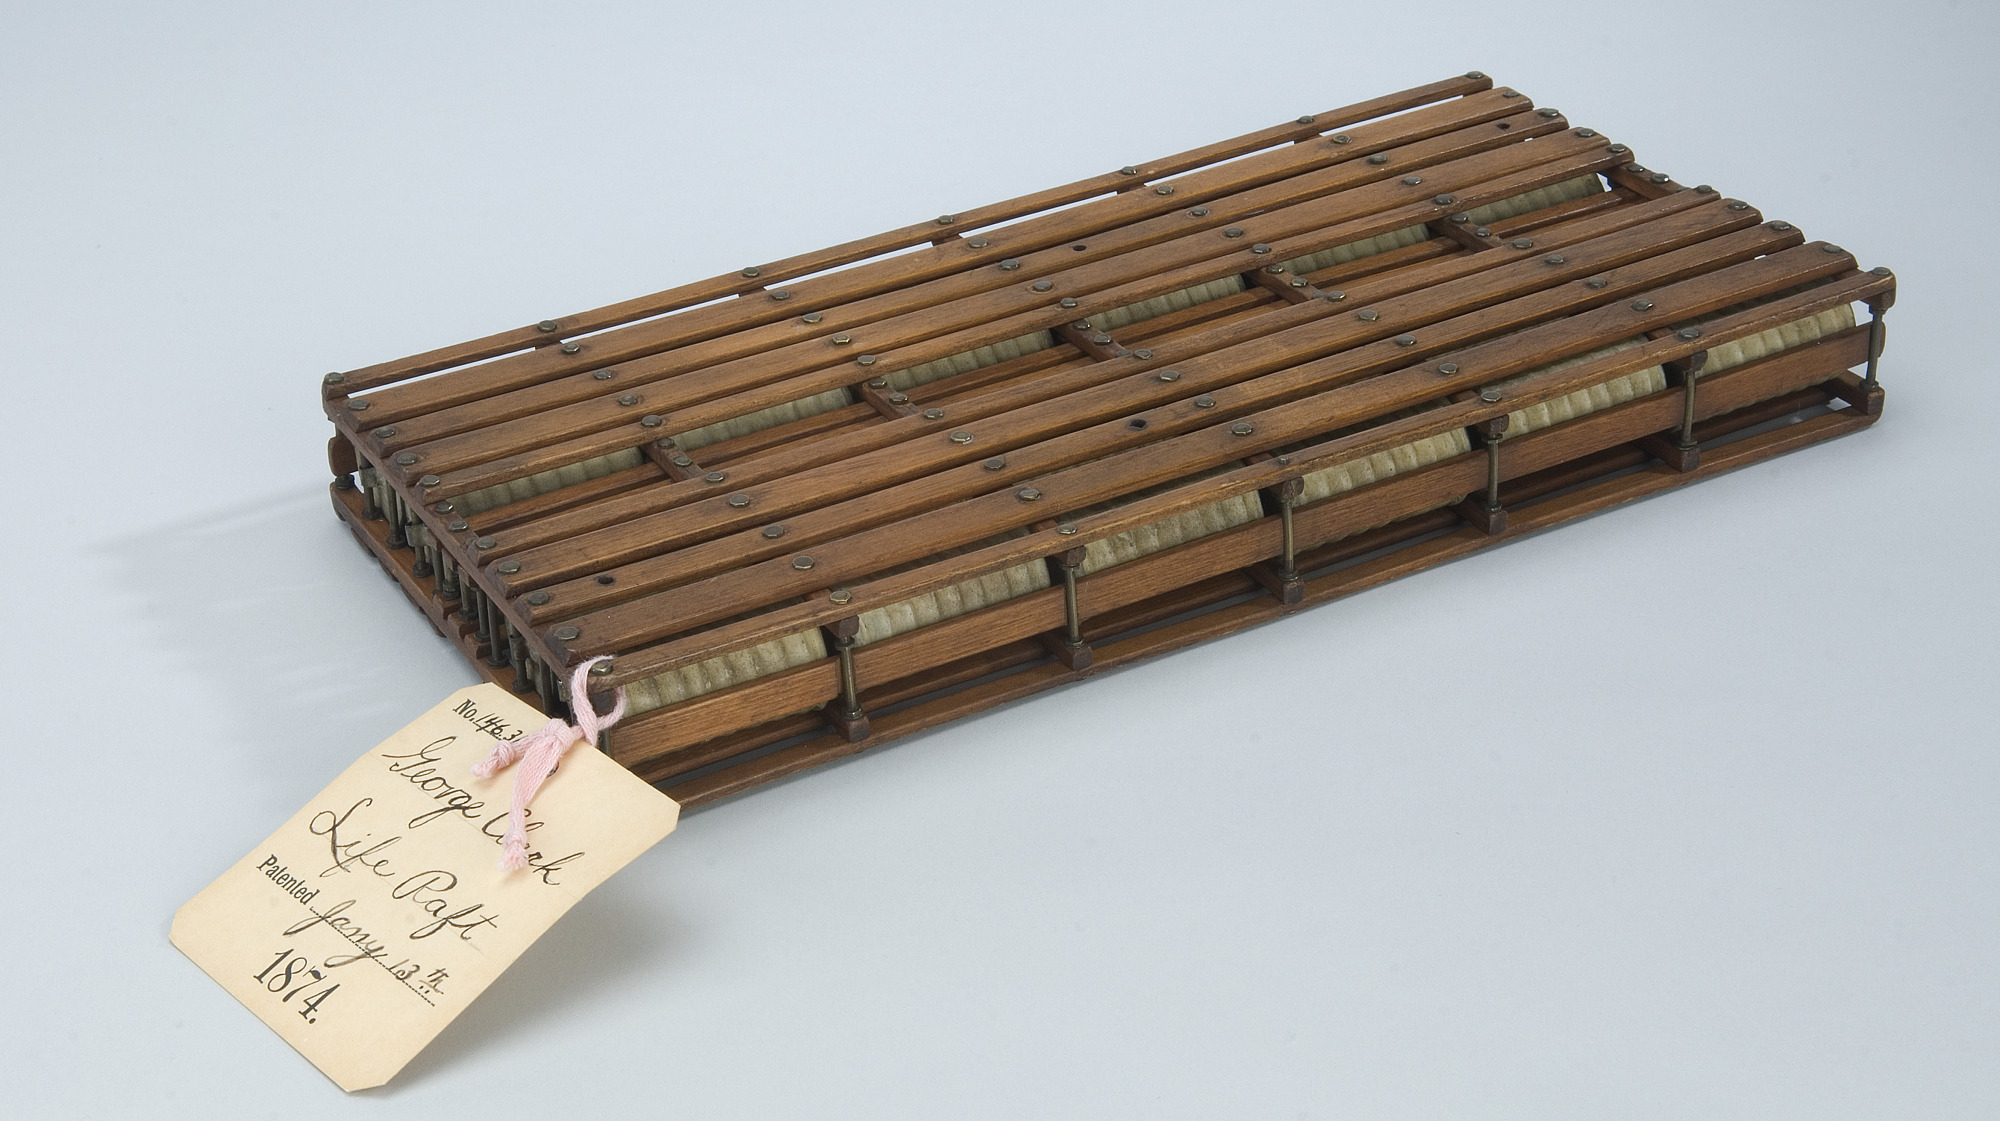 No. 146.3
George Clark
Life Raft
Patented Jany 13th
1874.